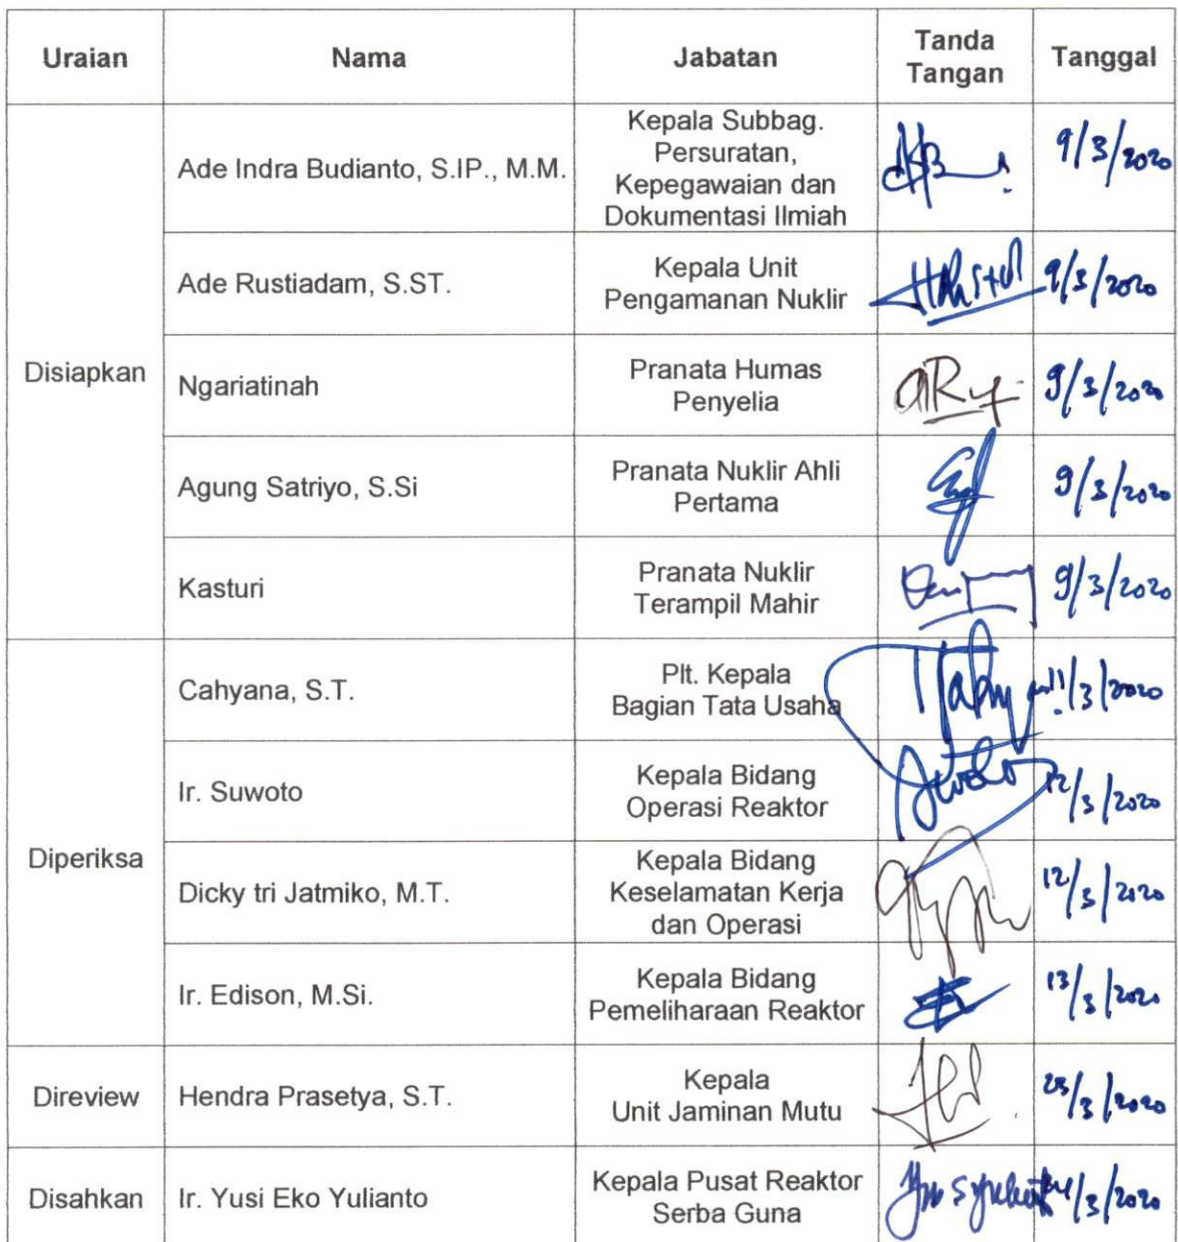 Uraian
Nama
Jabatan
Tanda
Tangan
Tanggal
Disiapkan
Ade Indra Budianto, S.IP., M.M.
Kepala Subbag.
Persuratan,
Kepegawaian dan
Dokumentasi Ilmiah
9/3/2020
Ade Rustiadam, S.ST.
Kepala Unit
Pengamanan Nuklir
9/3/2020
Ngariatinah
Pranata Humas
Penyelia
9/3/2020
Agung Satriyo, S.Si
Pranata Nuklir Ahli
Pertama
9/3/2020
Kasturi
Pranata Nuklir
Terampil Mahir
9/3/2020
Diperiksa
Cahyana, S.T.
Plt. Kepala
Bagian Tata Usaha
11/3/2020
Ir. Suwoto
Kepala Bidang
Operasi Reaktor
12/3/2020
Dicky tri Jatmiko, M.T.
Kepala Bidang
Keselamatan Kerja
dan Operasi
12/3/2020
Ir. Edison, M.Si.
Kepala Bidang
Pemeliharaan Reaktor
13/3/2020
Direview
Hendra Prasetya, S.T.
Kepala
Unit Jaminan Mutu
23/3/2020
Disahkan
Ir. Yusi Eko Yulianto
Kepala Pusat Reaktor
Serba Guna
24/3/2020